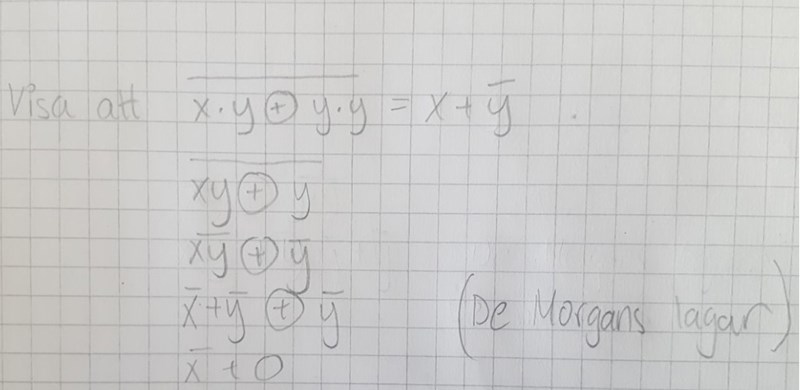 Visa att \overline{x·y⊕y·y} = x+ȳ .
\overline{xy⊕y}
\overline{xy}⊕ȳ
x̄+ȳ⊕ȳ (De Morgans lagar)
x̄+0